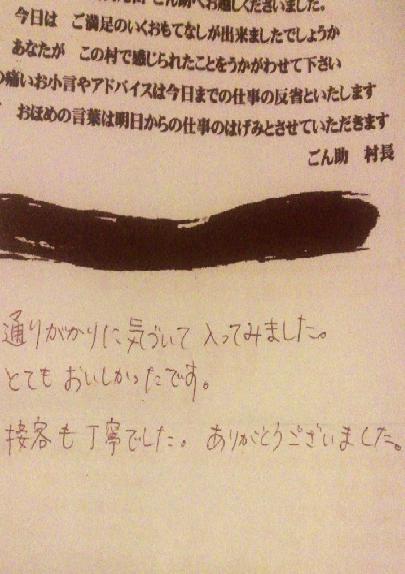 ごん助へお越しくださいました。
今日は ご満足のいくおもてなしが出来ましたでしょうか
あなたが この村で感じられたことをうかがわせて下さい
痛いお小言やアドバイスは今日までの仕事の反省といたします
おほめの言葉は明日からの仕事のはげみとさせていただきます
ごん助 村長
通りがかりに気づいて 入ってみました。
とても おいしかったです。
接客も丁寧でした。 ありがとうございました。